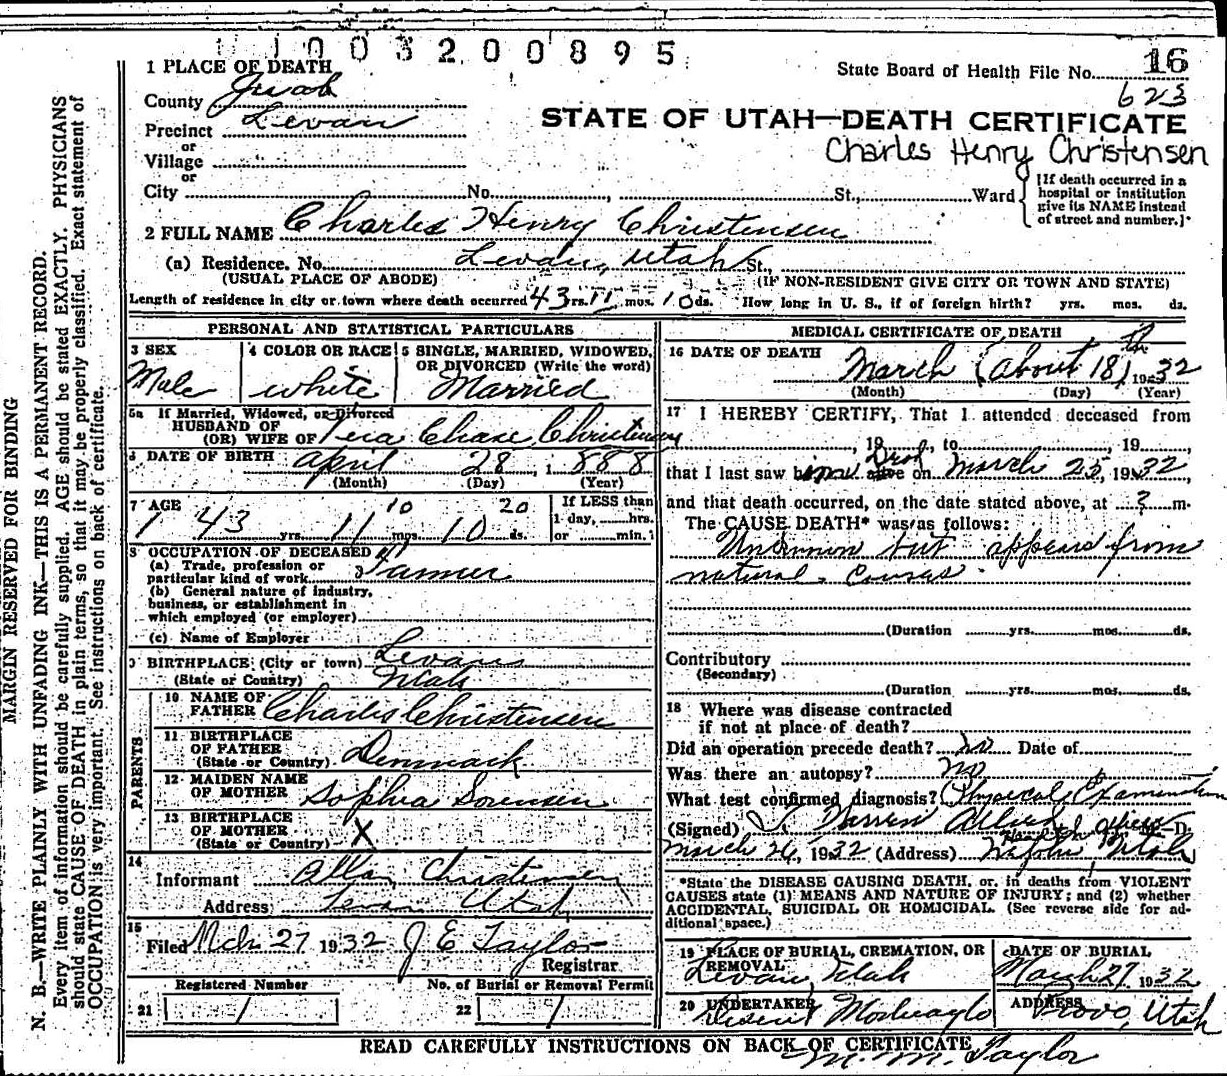 1003200895
1 PLACE OF DEATH
State Board of Health File No. 16
623
County Juab
STATE OF UTAH—DEATH CERTIFICATE
Precinct Levan
Charles Henry Christensen
or
Village
or
City No. St., Ward
[If death occurred in a
hospital or institution
give its NAME instead
of street and number.]*
2 FULL NAME Charles Henry Christensen
(a) Residence. No. Levan, Utah St.,
(USUAL PLACE OF ABODE) (IF NON-RESIDENT GIVE CITY OR TOWN AND STATE)
Length of residence in city or town where death occurred 43 yrs. 11 mos. 10 ds. How long in U. S., if of foreign birth? yrs. mos. ds.
PERSONAL AND STATISTICAL PARTICULARS
3 SEX
Male
4 COLOR OR RACE
white
5 SINGLE, MARRIED, WIDOWED,
OR DIVORCED (Write the word)
Married
5a If Married, Widowed, or Divorced
HUSBAND OF
(OR) WIFE OF Chase Christensen
6 DATE OF BIRTH April 28, 1888
(Month) (Day) (Year)
7 AGE 10 20
43 yrs. 11 mos. 10 ds.
If LESS than
1 day, hrs.
or min.
8 OCCUPATION OF DECEASED
(a) Trade, profession or
particular kind of work Farmer
(b) General nature of industry,
business, or establishment in
which employed (or employer)
(c) Name of Employer
9 BIRTHPLACE (City or town) Levan
(State or Country) Utah
PARENTS
10 NAME OF
FATHER Charles Christensen
11 BIRTHPLACE
OF FATHER
(State or Country) Denmark
12 MAIDEN NAME
OF MOTHER Sophia Sorensen
13 BIRTHPLACE
OF MOTHER
(State or Country) X
14
Informant Allan Christensen
Address Levan Utah
15
Filed Mch 27 1932 J E Taylor
Registrar
Registered Number No. of Burial or Removal Permit
21 1 22 1
MEDICAL CERTIFICATE OF DEATH
16 DATE OF DEATH
March (about 18th) 1932
(Month) (Day) (Year)
17 I HEREBY CERTIFY, That I attended deceased from
, 19 , to , 19
that I last saw him alive on March 25, 1932
and that death occurred, on the date stated above, at ? m.
The CAUSE DEATH* was as follows:
Unknown but appears from
natural causes
(Duration yrs. mos. ds.
Contributory
(Secondary)
(Duration yrs. mos. ds.
18 Where was disease contracted
if not at place of death?
Did an operation precede death? no Date of
Was there an autopsy? no
What test confirmed diagnosis? Physical Examination
(Signed) Warren Allred M—D.
March 26, 1932 (Address) Nephi Utah
*State the DISEASE CAUSING DEATH, or, in deaths from VIOLENT
CAUSES state (1) MEANS AND NATURE OF INJURY; and (2) whether
ACCIDENTAL, SUICIDAL OR HOMICIDAL. (See reverse side for ad-
ditional space.)
19 PLACE OF BURIAL, CREMATION, OR
REMOVAL
Levan, Utah
DATE OF BURIAL
March 27 1932
20 UNDERTAKER
ADDRESS
Provo, Utah
READ CAREFULLY INSTRUCTIONS ON BACK OF CERTIFICATE
M. M. Taylor
MARGIN RESERVED FOR BINDING
N. B.—WRITE PLAINLY WITH UNFADING INK—THIS IS A PERMANENT RECORD.
Every item of information should be carefully supplied. AGE should be stated EXACTLY. PHYSICIANS
should state CAUSE OF DEATH in plain terms, so that it may be properly classified. Exact statement of
OCCUPATION is very important. See instructions on back of certificate.